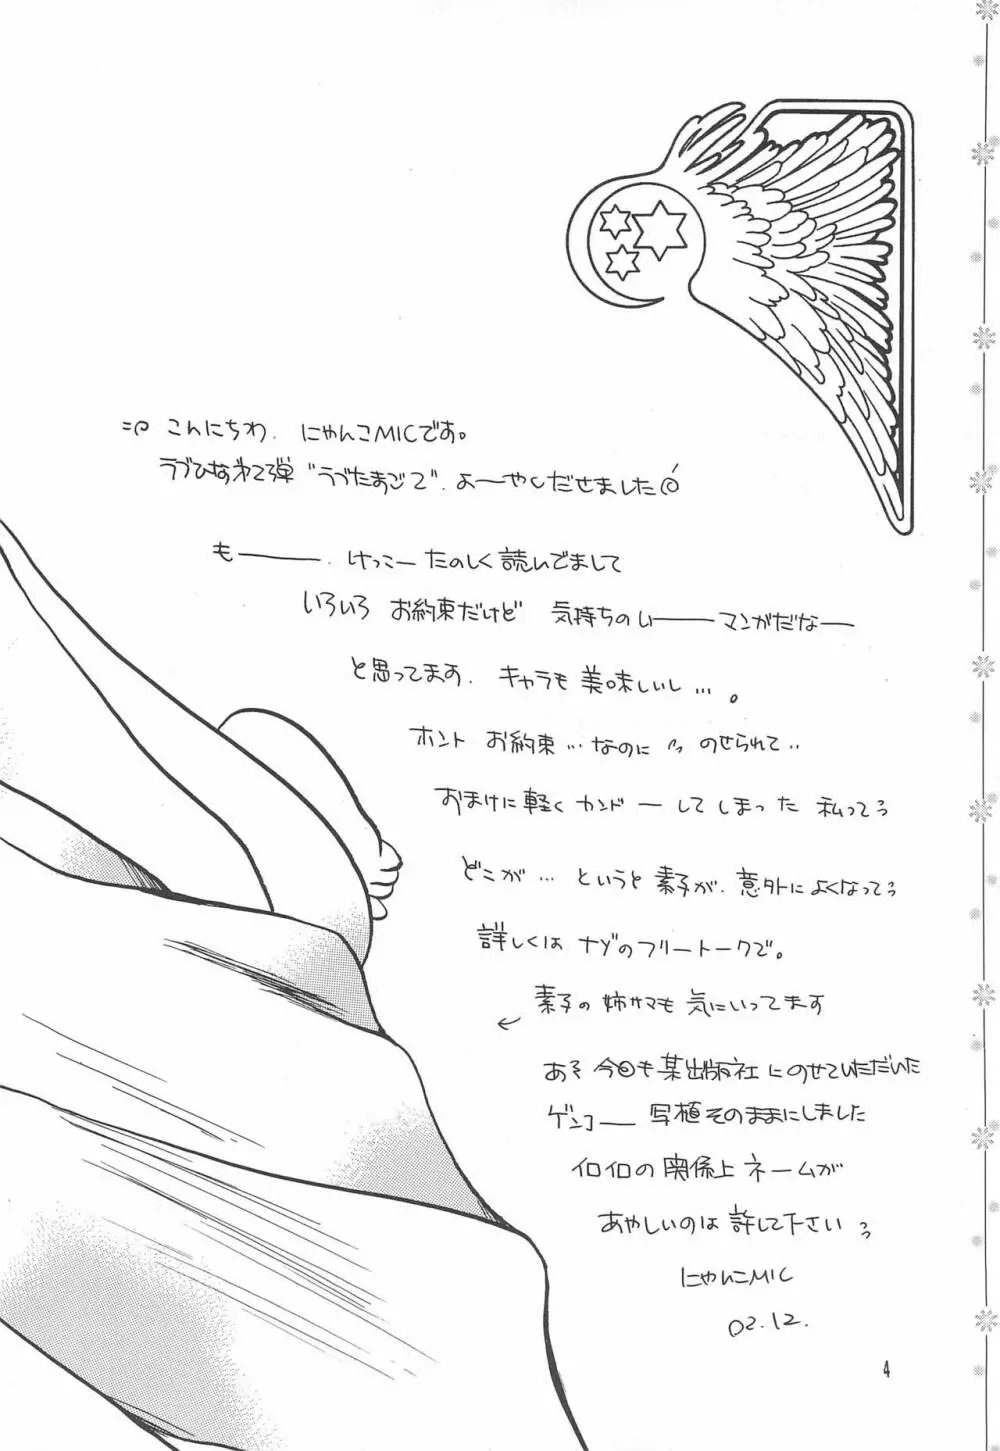 こんにちわ. にゃんこMICです。
ラブひなネて弾 “ラブたまごて”. よーやくだせました
も———. けっこー たのしく 読んでまして
いろいろ お約束だけど 気持ちのいーーマンガだなー
と思ってます. キャラも 美味しいし…。
ホント お約束…なのに のせられて..
おまけに軽く カンドーしてしまった 私って
どこが… というと 素子が. 意外に よくなって
詳しくは ナゾのフリートークで。
素子の 姉サマも 気にいってます
あそ 今回も 某出版社 にのせていただいた
ゲンコー 写植そのままにしました
イロイロの 関係上 ネームが
あやしいのは 許して下さい
にゃんこMIC
02.12.
4